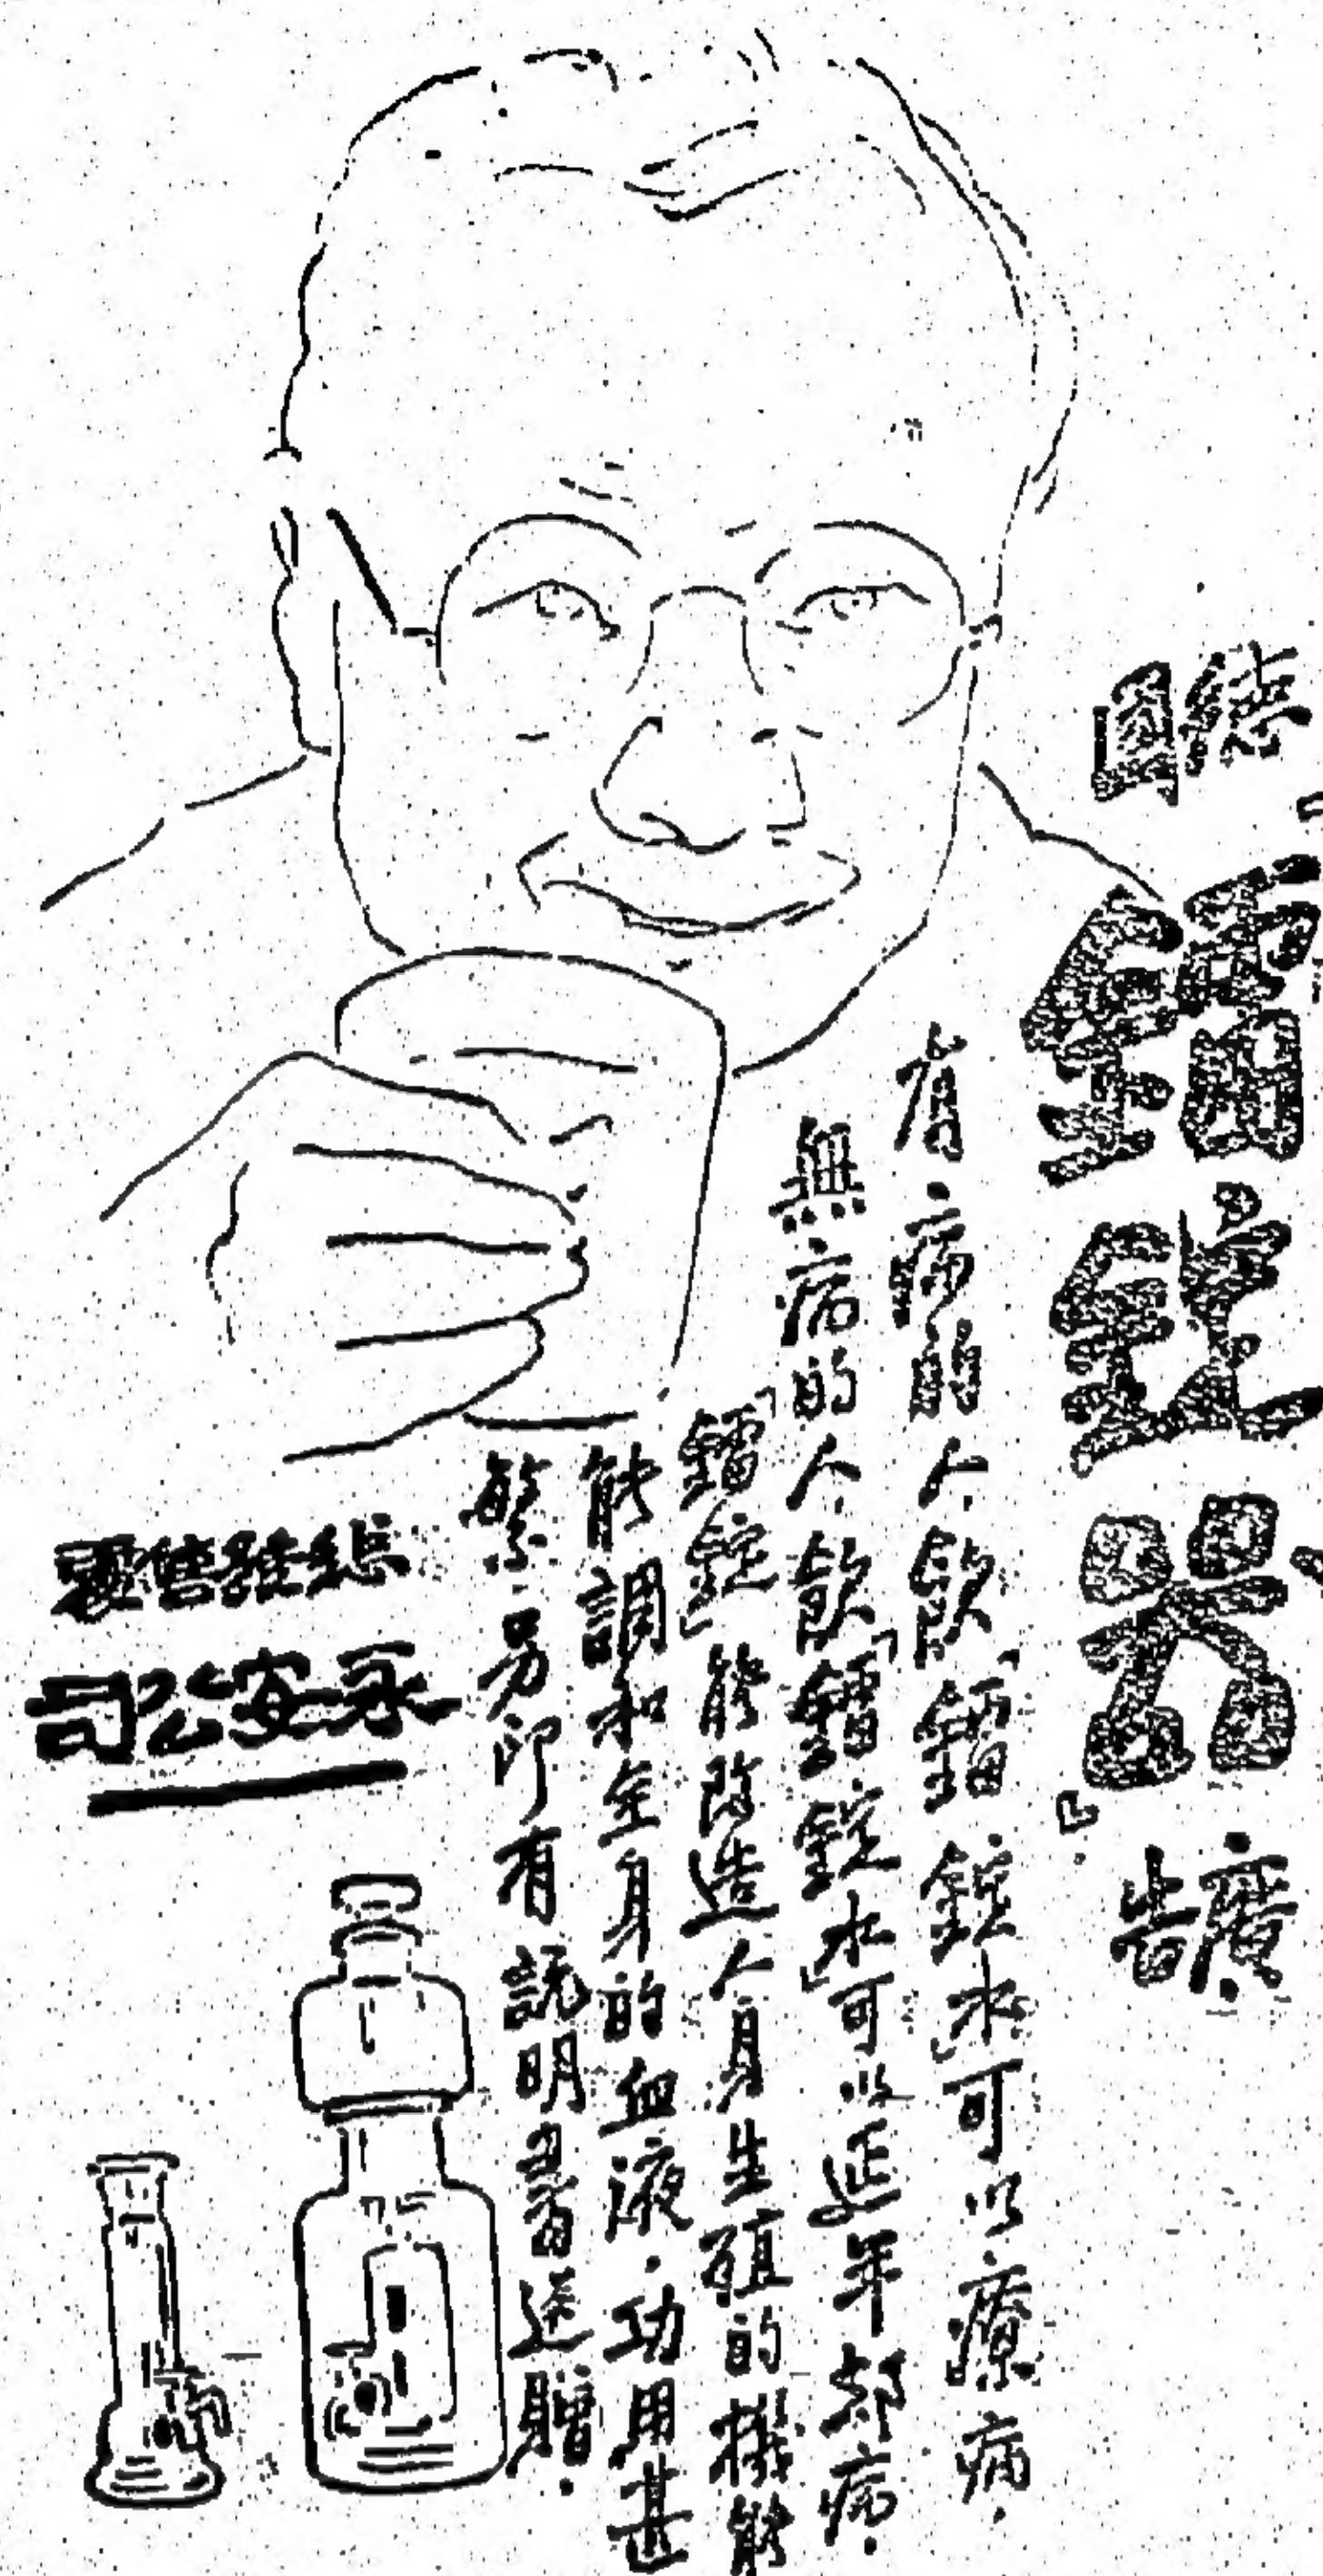 德國
「鐳錠器」
廣告
有病的人.飲「鐳錠水」可以療病.
無病的人.飲「鐳錠水」可以延年却病.
「鐳錠」能改造人身生殖的機能
能調和全身的血液.功用甚
繁.另印有説明書送贈.
總經售處
永安公司